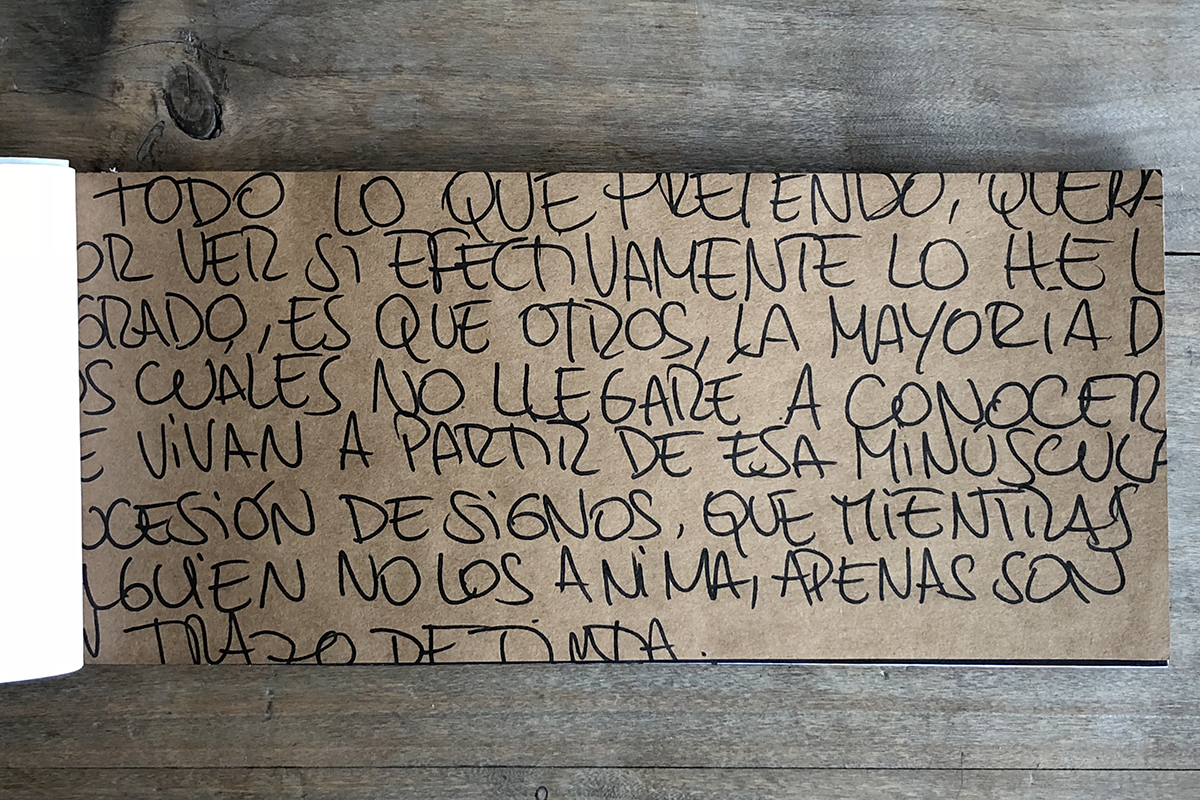 TODO LO QUE PRETENDO, QUERA
OR VER SI EFECTIVAMENTE LO HE L
GRADO, ES QUE OTROS, LA MAYORIA D
OS CUALES NO LLEGARE A CONOCER
E VIVAN A PARTIR DE ESA MINÚSCUL
UCESIÓN DE SIGNOS, QUE MIENTRAS
LGUIEN NO LOS ANIMA, APENAS SON
N TRAZO DE TINTA.